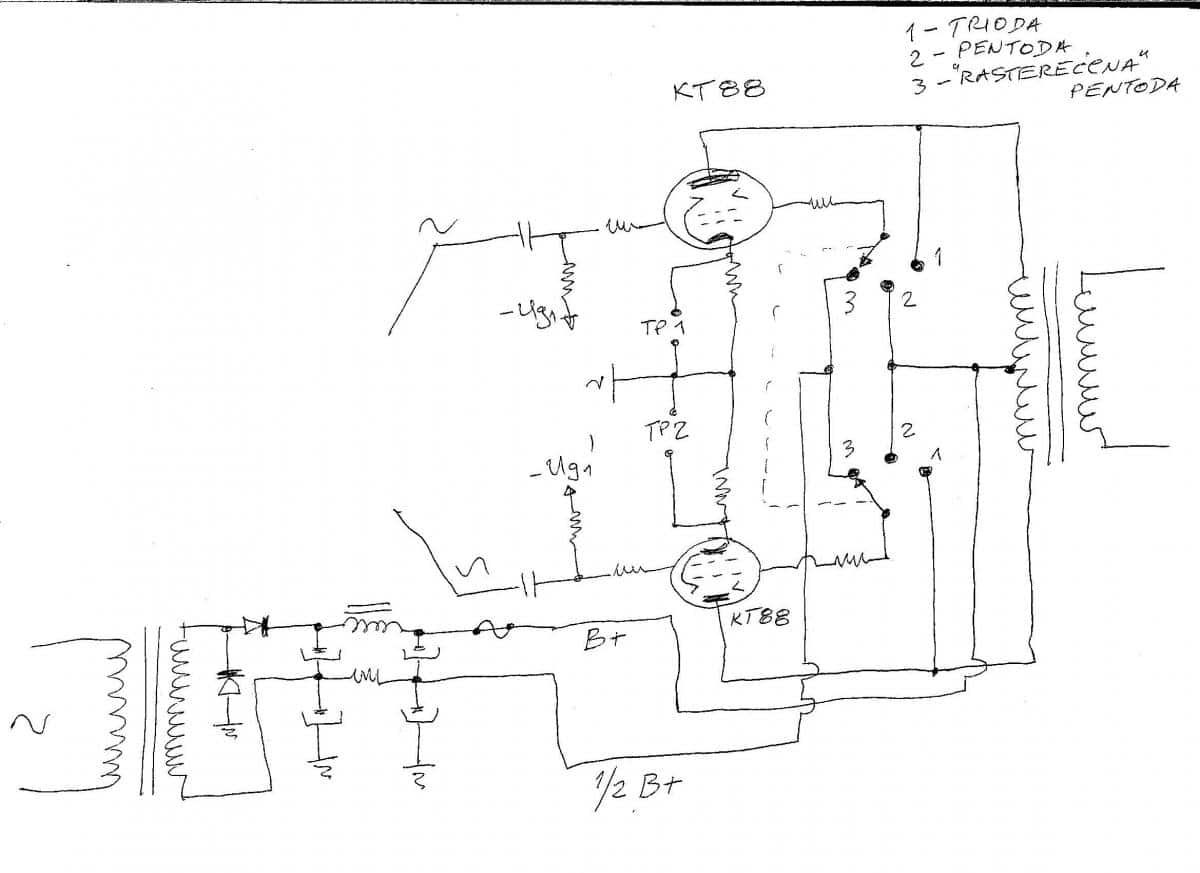 1 - TRIODA
2 - PENTODA
3 - "RASTEREĆENA"
PENTODA
KT88
1
3
2
-Ug1
TP1
TP2
2
3
1
-Ug1'
KT88
B+
1/2 B+